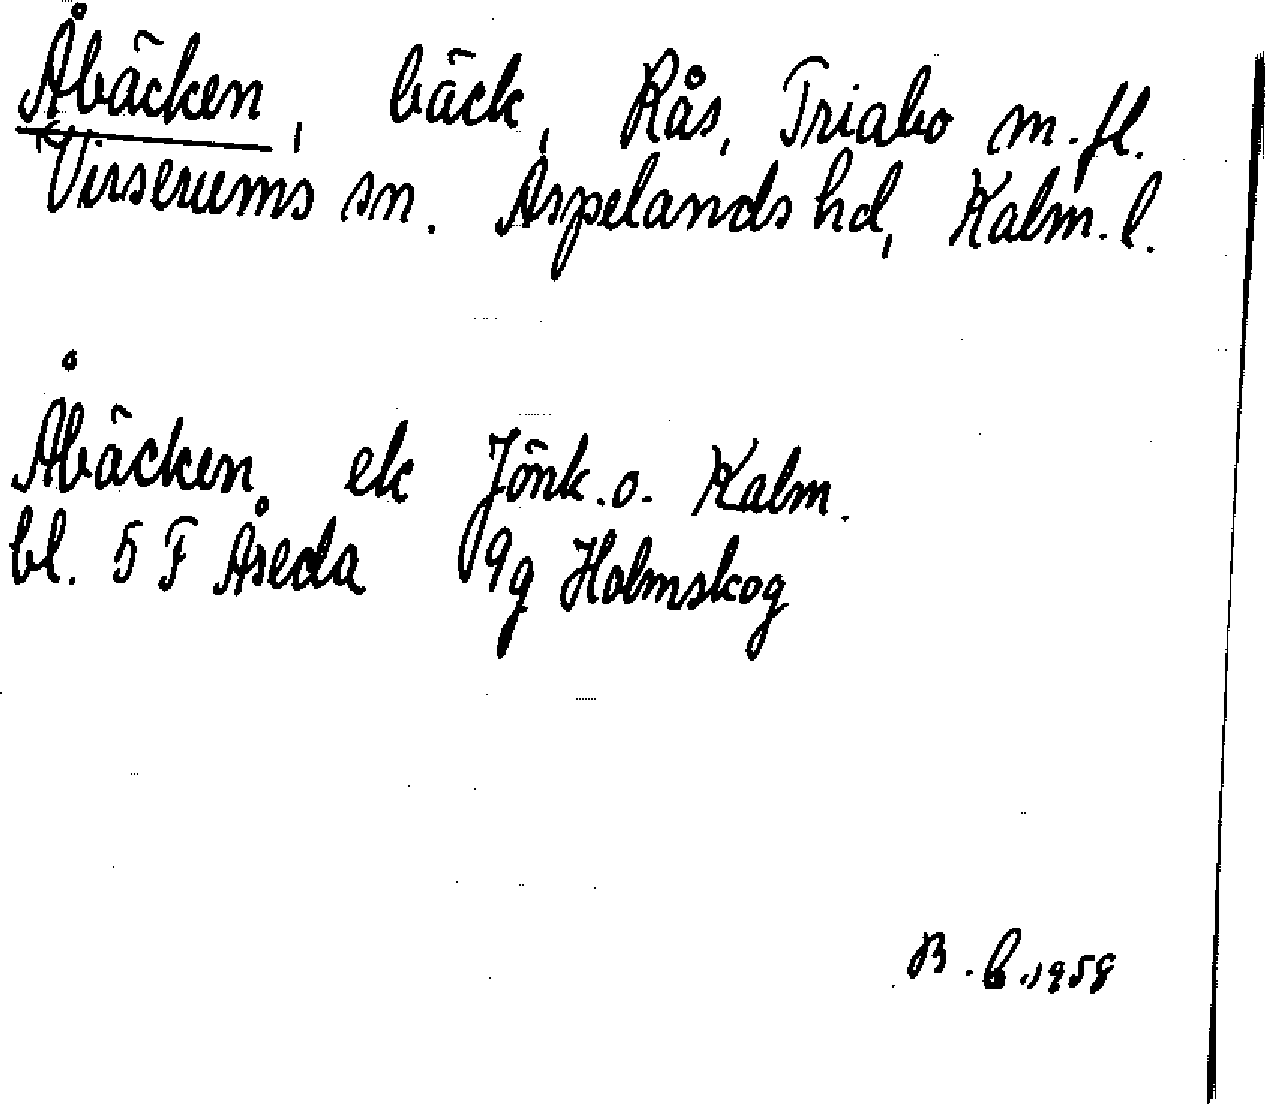 Åbäcken, bäck, Rås, Triabo m. fl.
Virserums sn. Aspelands hd, Kalm. l.
Åbäcken ek Jönk. o. Kalm.
bl. 5 F Åseda 9g Holmskog
B. C. 1958